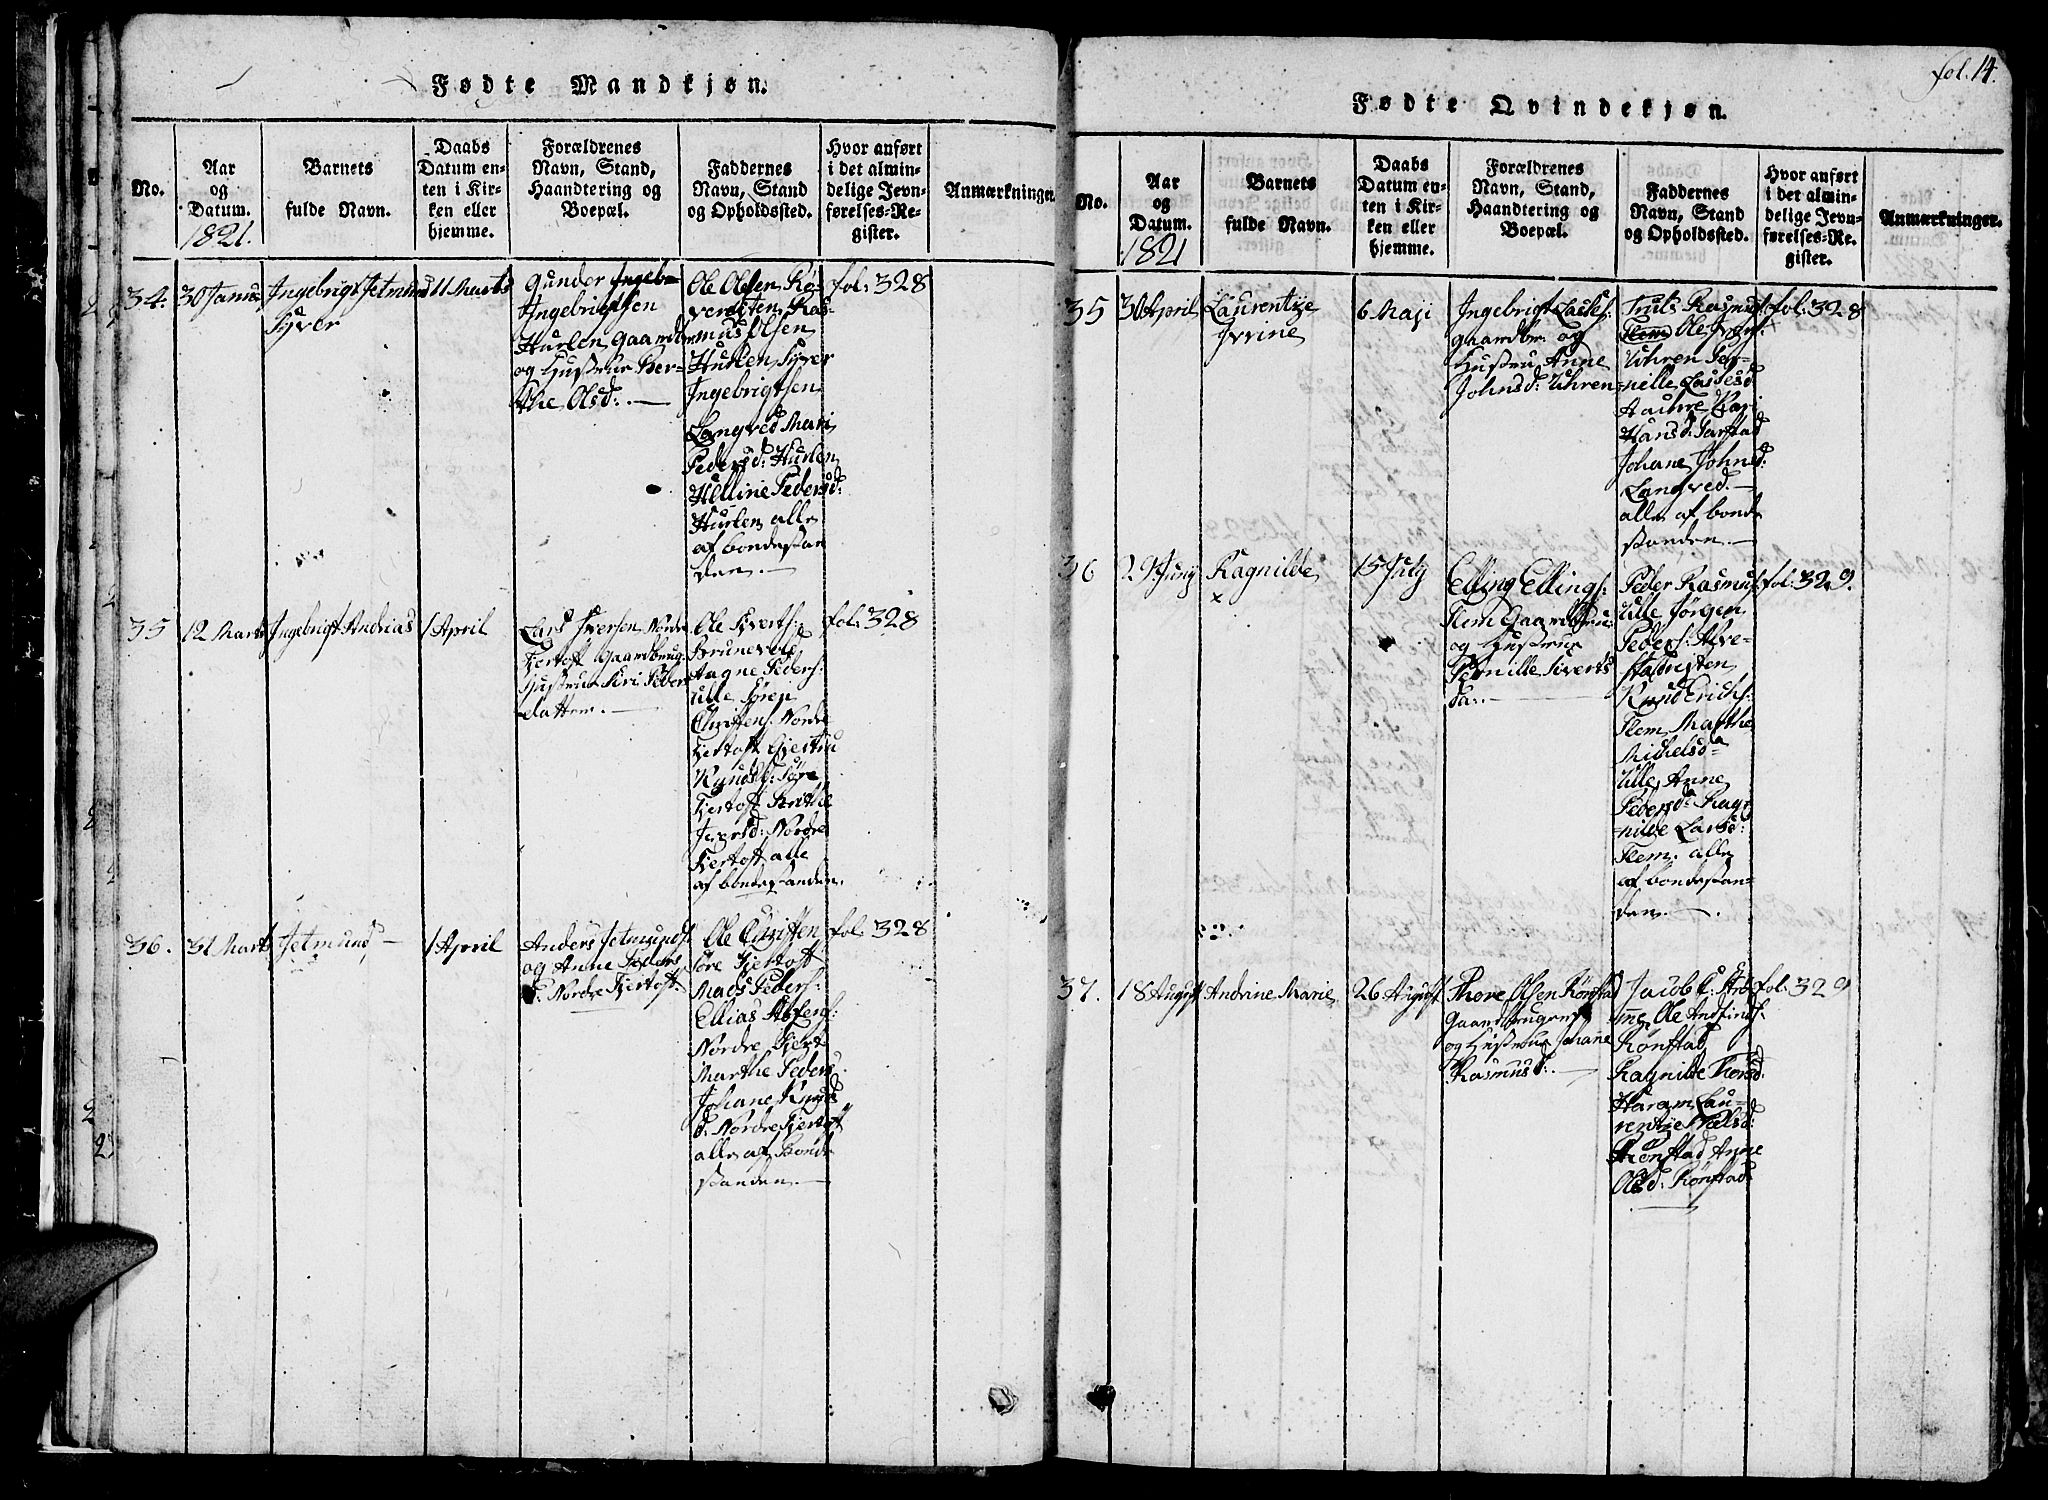 Fødte Mandkjøn.
No.
Aar
og
Datum.
1821.
Barnets
fulde Navn.
Daabs
Datum en-
ten i Kir-
ken eller
hjemme.
Forældrenes
Navn, Stand,
Haandtering og
Boepæl.
Faddernes
Navn, Stand
og Opholdssted.
Hvor anført
i det almin-
delige Jevn-
førelses-Re-
gister.
Anmærkninger
34.
30 Janua
Ingebrigt Jetmund
Siver
11 Marts
Gunder
Ingebrigtsen
Hurlen Gaardbr
og Hustrue Ber-
the Olsd:
Ole Olsen Rø-
Ras-
mus Olsen
Hurlen Siver
Ingebrigtsen
Langved Mari
Pedersd: Hurlen
Helline Pedersd:
Hurlen alle
af bondestan
den.
fol: 328
35
12 Marts
Ingebrigt Andrias
1 April
Lars Iversen Nordre
Fiertoft Gaardbrug
Hustrue Siri Peders
datter.
Ole Siverts:
Aagne Peders:
Ulle Søren
Nordre
Fiertoft Giertru
Knuds: Søre
Fiertoft Berthe
Iversd: Nordre
Fiertoft alle
af bondestanden.
fol: 328
36.
31 Marts
Jetmund
1 April
Anders Jetmunds:
og Anne Peders
d: Nordre Fiertoft.
Ole
Søre Fiertoft
Mads Peders:
Ellias
Nordre Fiert
Marthe Peders
Johane Knuds
d: Nordre Fiertoft
alle af Bonde
standen.
fol: 328
fol. 14.
Fødte Qvindekjøn.
No.
Aar
og
Datum.
1821
Barnets
fulde Navn.
Daabs
Datum en-
ten i Kir-
ken eller
hjemme.
Forældrenes
Navn, Stand,
Haandtering og
Boepæl.
Faddernes
Navn, Stand
og Opholdssted.
Hvor anført
i det almin-
delige Jevn-
førelses-Re-
gister.
Anmærkninger.
35
30 April
Laurentze
Ivrine
6 Maji
Ingebrigt Lasses:
gaardbr. og
Hustru Anne
Johnsd: Uhren
Truls Rasmus:
Flem Ole
Uhren Per-
nille Lassesd
Kari
Hansd:
Johane Johnsd:
Langved.
alle af bonde
standen.
fol: 328
36
29 Juny
Ragnilde
x
15 July
Elling Ellings:
Flem Gaardbru:
og Hustrue
Pernille Siverts
da.
Peder Rasmus:
Ulle Jørgen
Peders: Alve-
Knud Erichs:
Flem Marthe
Michelsda
Ulle Anne
Pedersda Rag-
nilde Larsd:
Flem. alle
af bondestan-
den.
fol: 329.
37.
18 August
Andrine Marie
26 August
Thore Olsen Rønstad
Gaardbruger
og Hustrue Johane
Rasmusd:
Jacob
Ole Andfinds:
Rønstad
Ragnilde Thorsd.
Haram Lau-
rentzie Nielsd:
Rønstad Anne
Olsd: Rønstad
fol: 329